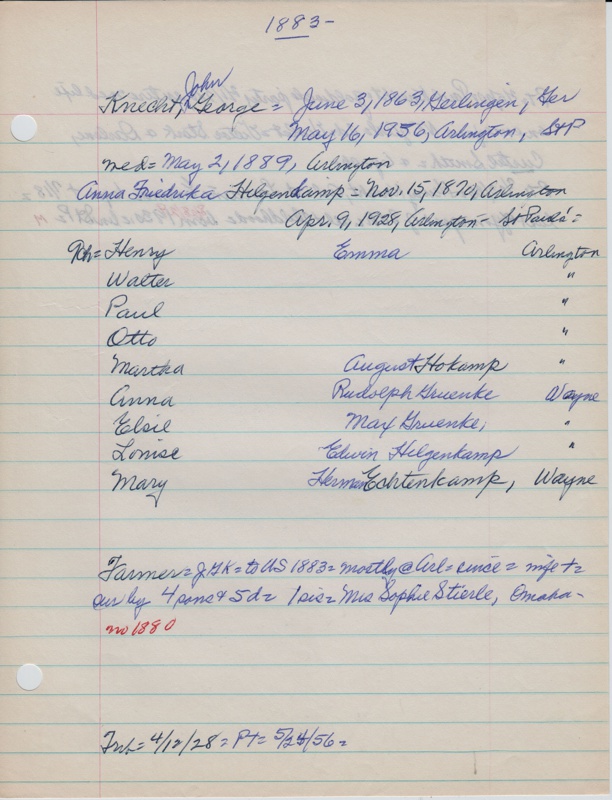 1883-
John
Knecht, George = June 3, 1863, Gerlingen, Ger
May 16, 1956, Arlington, St P
med = May 2, 1889, Arlington
Anna Friedrika Helgenkamp = Nov. 15, 1870, Arlington
Apr. 9, 1928, Arlington - St Pauls =
9ch = Henry Emma Arlington
Walter "
Paul "
Otto "
Martha August Hokamp "
Anna Rudolph Gruenke Wayne
Elsie Max Gruenke, "
Louise Edwin Helgenkamp "
Mary Herman Echtenkamp, Wayne
Farmer = J.G.K = to US 1883 = mostly @ Arl = since = wife + =
sur by 4 sons + 5 d = 1 sis = Mrs Sophie Stierle, Omaha -
no 1880
Trib = 4/12/28 = PT = 5/24/56 =